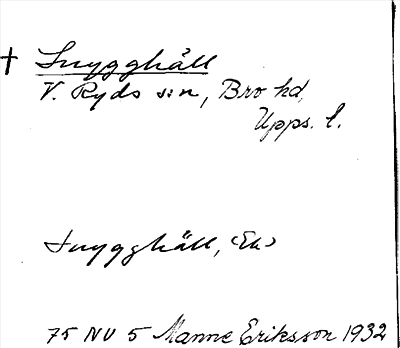 † Snygghäll
V. Ryds sn, Bro hd,
Upps. l.
Snygghäll, (Ek)
75 NV 5 Manne Eriksson 1932